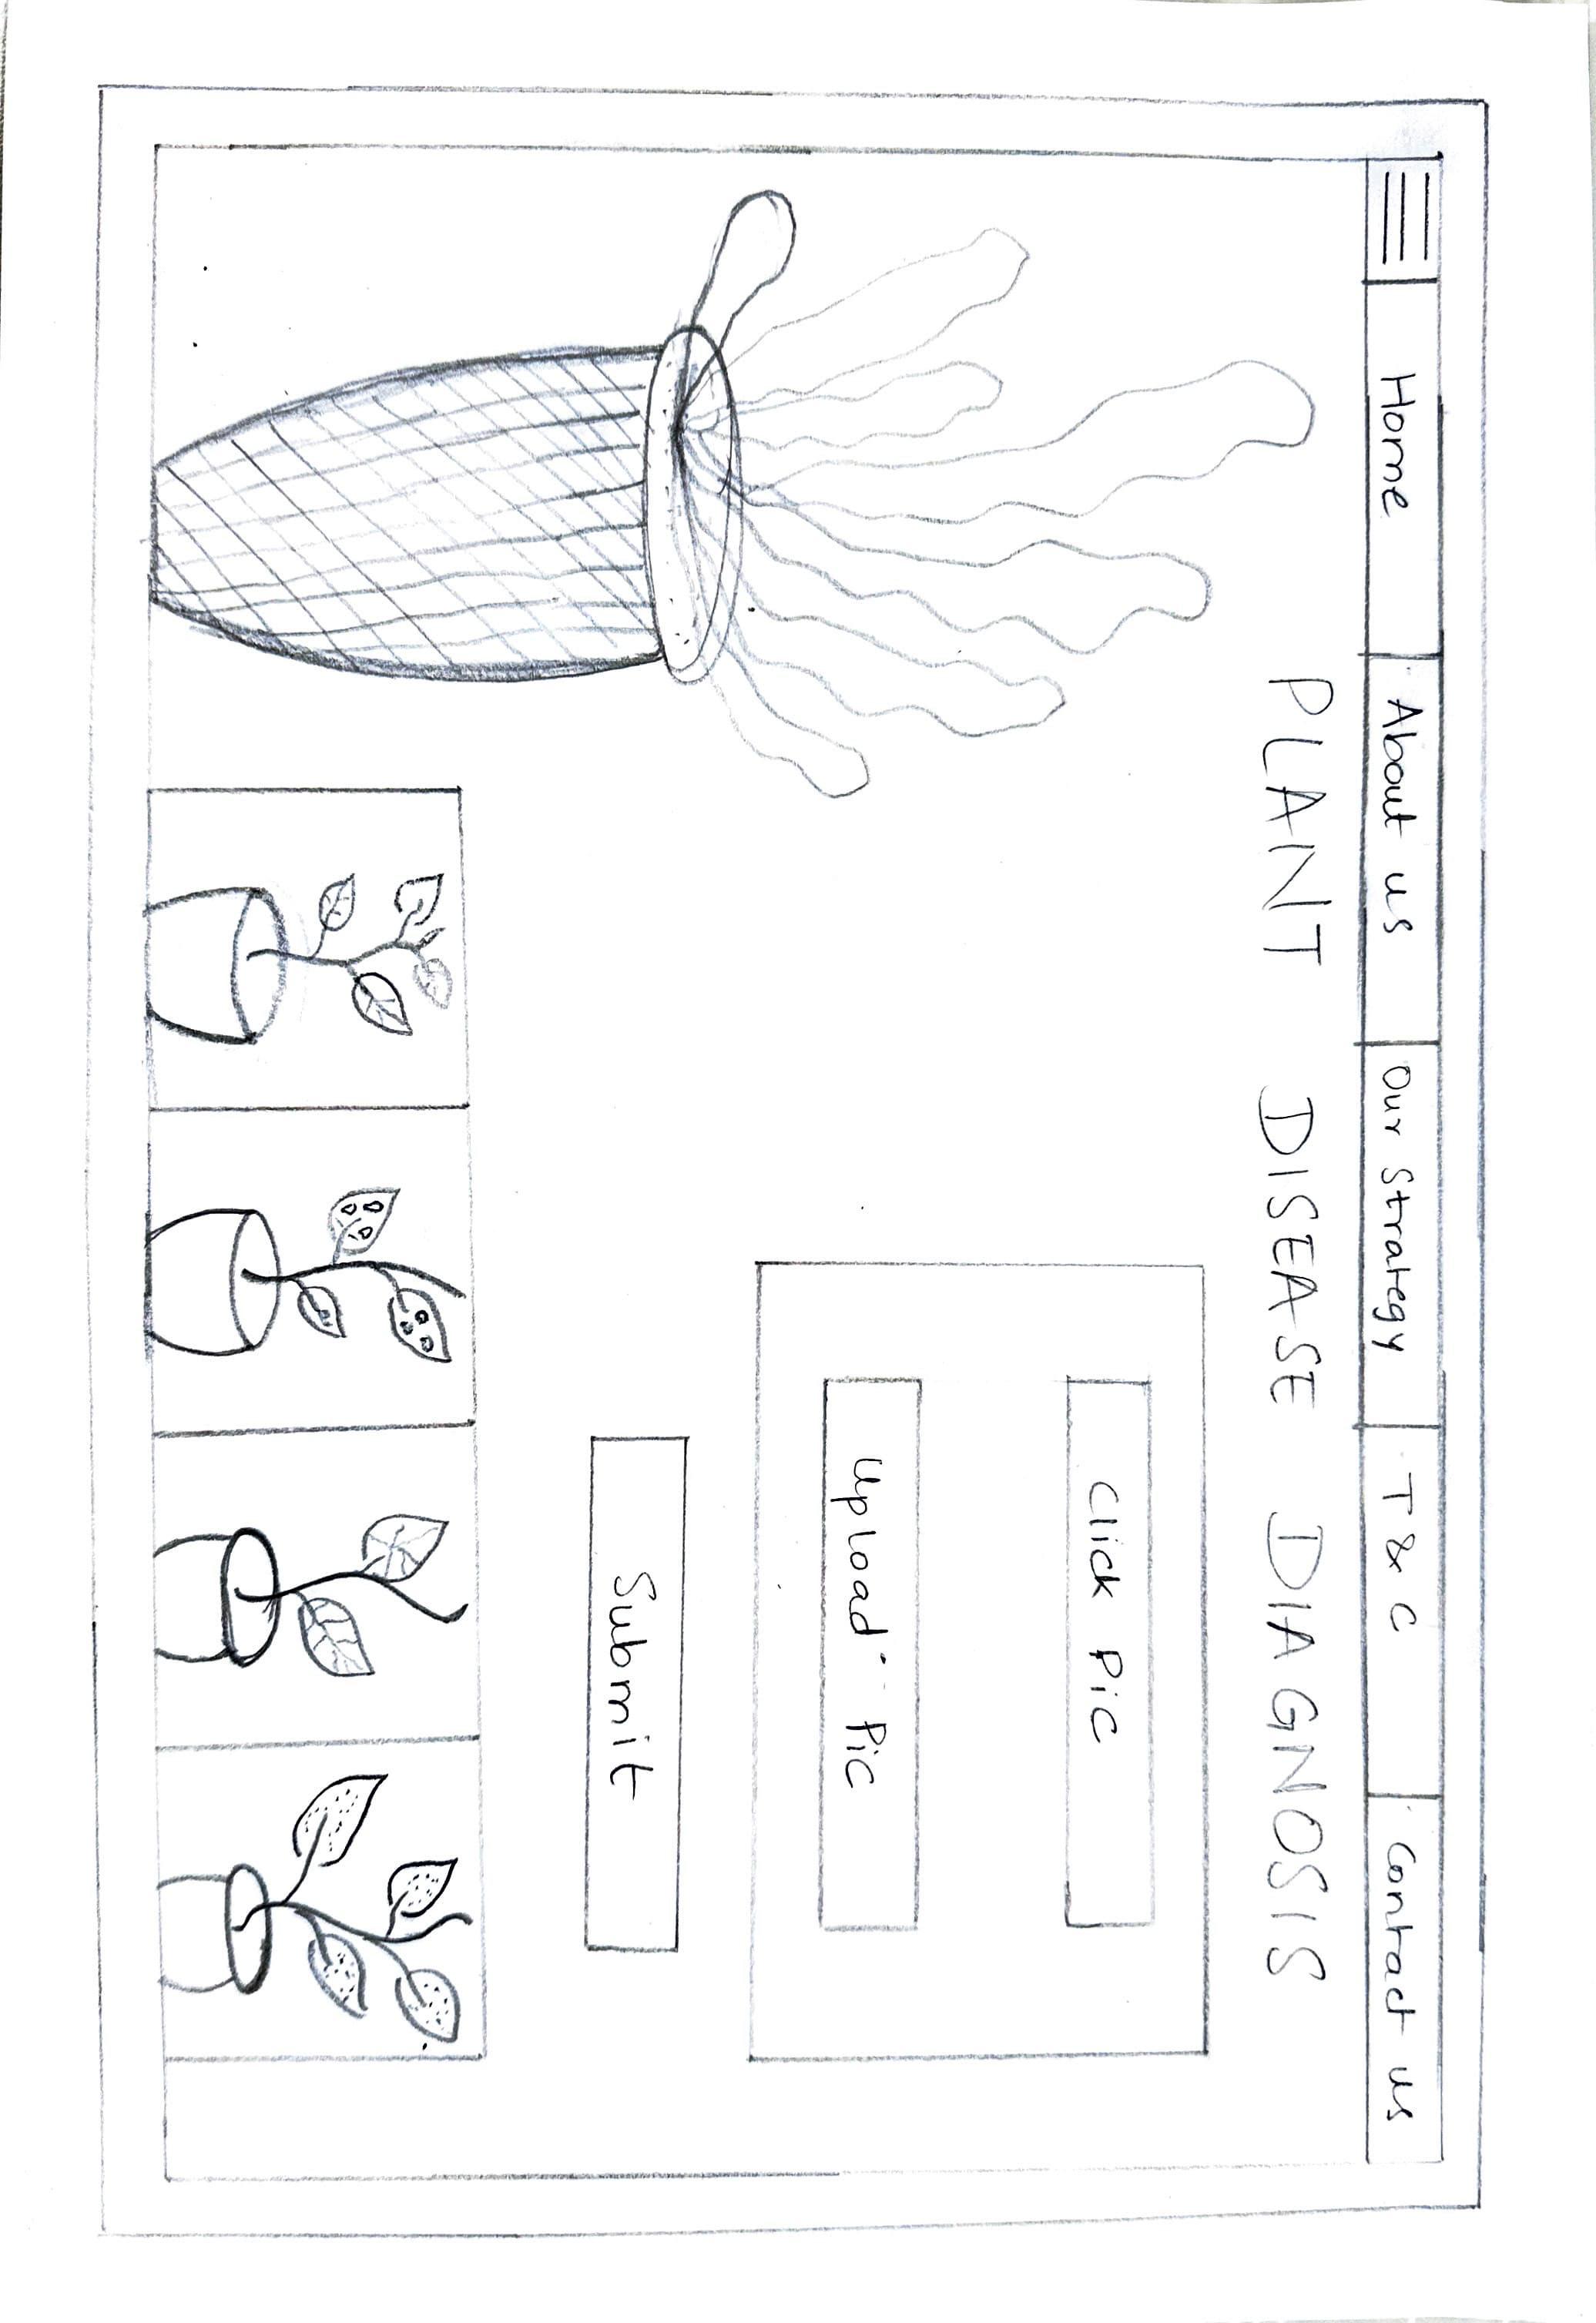 Home About us Our Strategy T & C Contact us
PLANT DISEASE DIAGNOSIS
Click Pic
Upload Pic
Submit